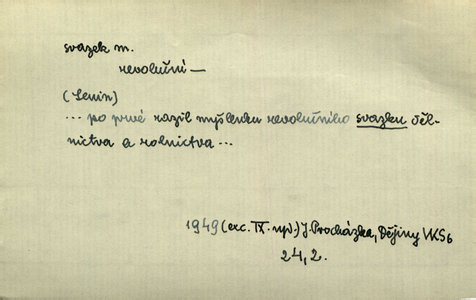 svazek m.
revoluční —
(Lenin)
... po prvé razil myšlenku revolučního svazku děl-
nictva a rolnictva ...
1949 (exc. IX. up.) J. Procházka, Dějiny VKSb
24, 2.